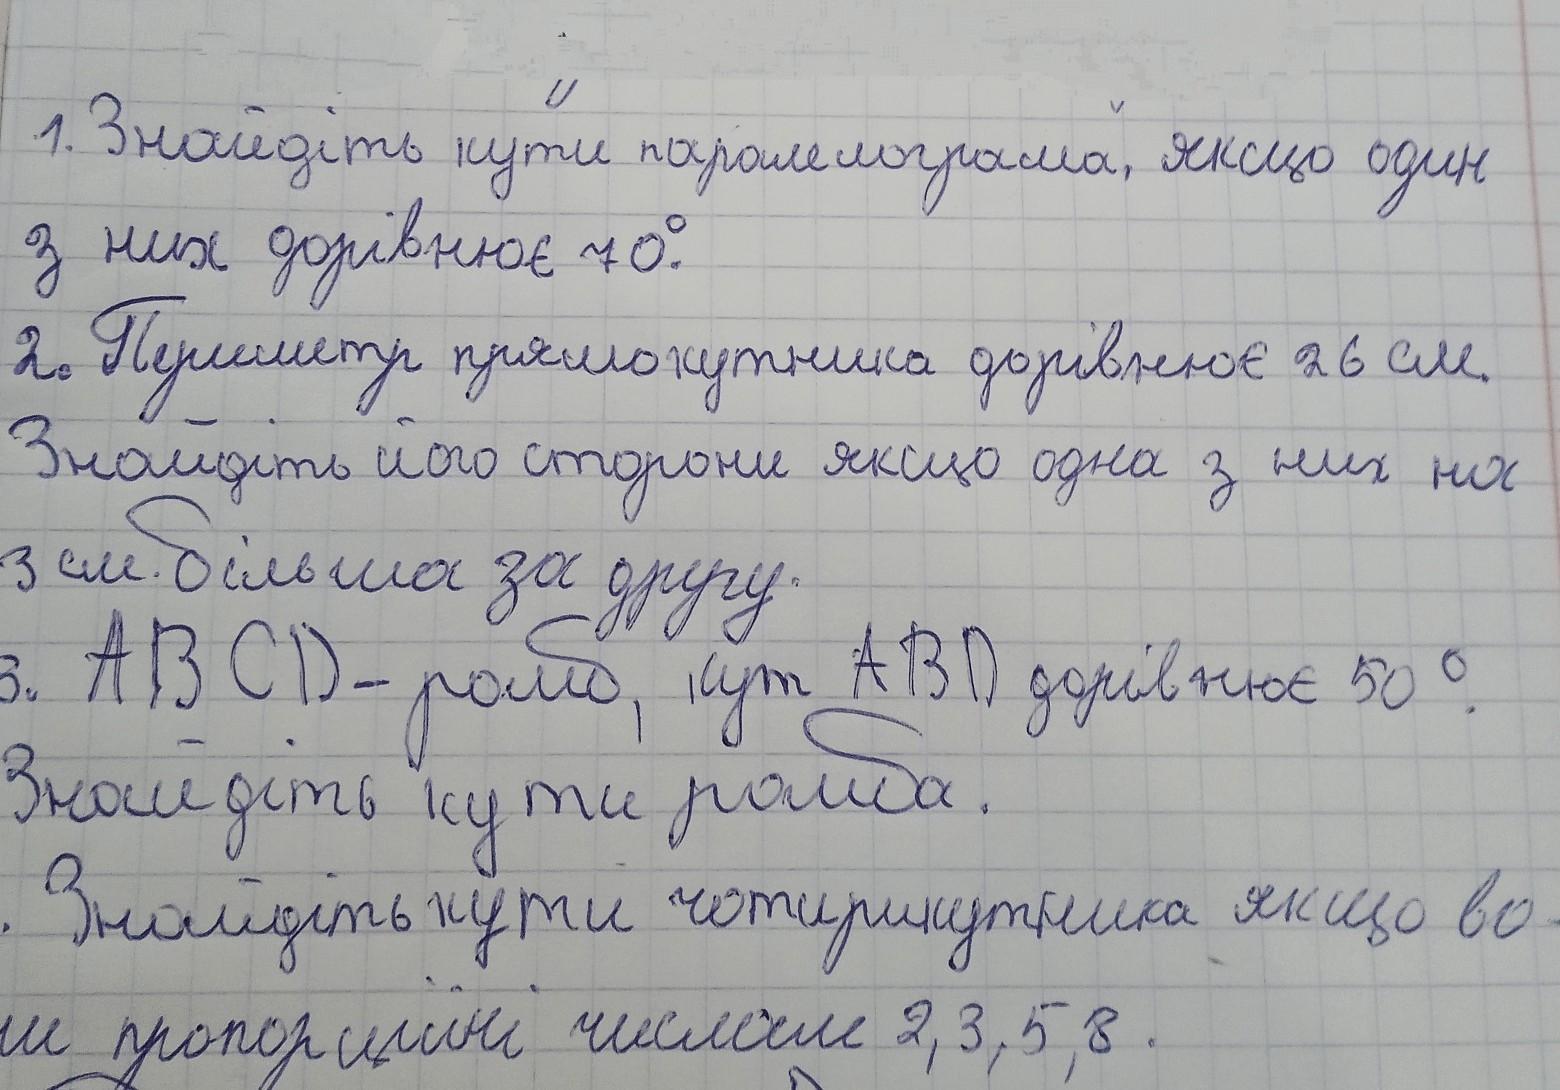 1. Знайдіть кути паралелограма, якщо один
з них дорівнює 70°.
2. Периметр прямокутника дорівнює 26 см.
Знайдіть його сторони якщо одна з них на
3 см. більша за другу.
3. ABCD – ромб, кут ABD дорівнює 50°.
Знайдіть кути ромба.
. Знайдіть кути чотирикутника якщо во-
ни пропорційні числам 2, 3, 5, 8.